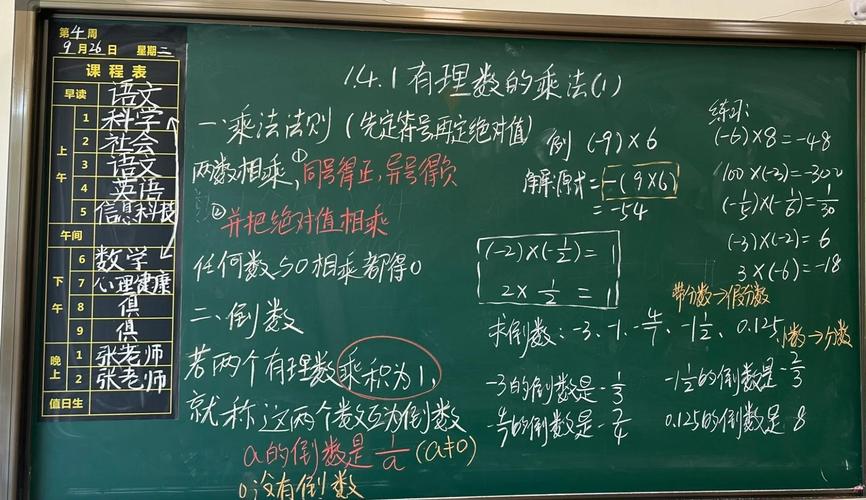 第4周
9月26日 星期二
课程表
早读 语文
上午
1 科学
2 社会
3 语文
4 英语
5 信息科技
午间
下午
6 数学
7 心理健康
8 俱
9 俱
晚上
1 张老师
2 张老师
值日生
1.4.1有理数的乘法(1)
一.乘法法则(先定符号再定绝对值)
两数相乘,①同号得正,异号得负
②并把绝对值相乘
任何数与0相乘都得0
二.倒数
若两个有理数乘积为1,
就称这两个数互为倒数
a的倒数是1/a(a≠0)
0没有倒数
例 (-9)×6
解:原式=-(9×6)
=-54
(-2)×(-1/2)=1
2×1/2=1
练习:
(-6)×8=-48
100×(-3)=-300
(-1/5)×(-1/6)=1/30
(-3)×(-2)=6
3×(-6)=-18
带分数→假分数
求倒数:-3、-1、-4/7、-1 1/2、0.125
小数→分数
-3的倒数是-1/3
-1 1/2的倒数是-2/3
-4/7的倒数是-7/4
0.125的倒数是8